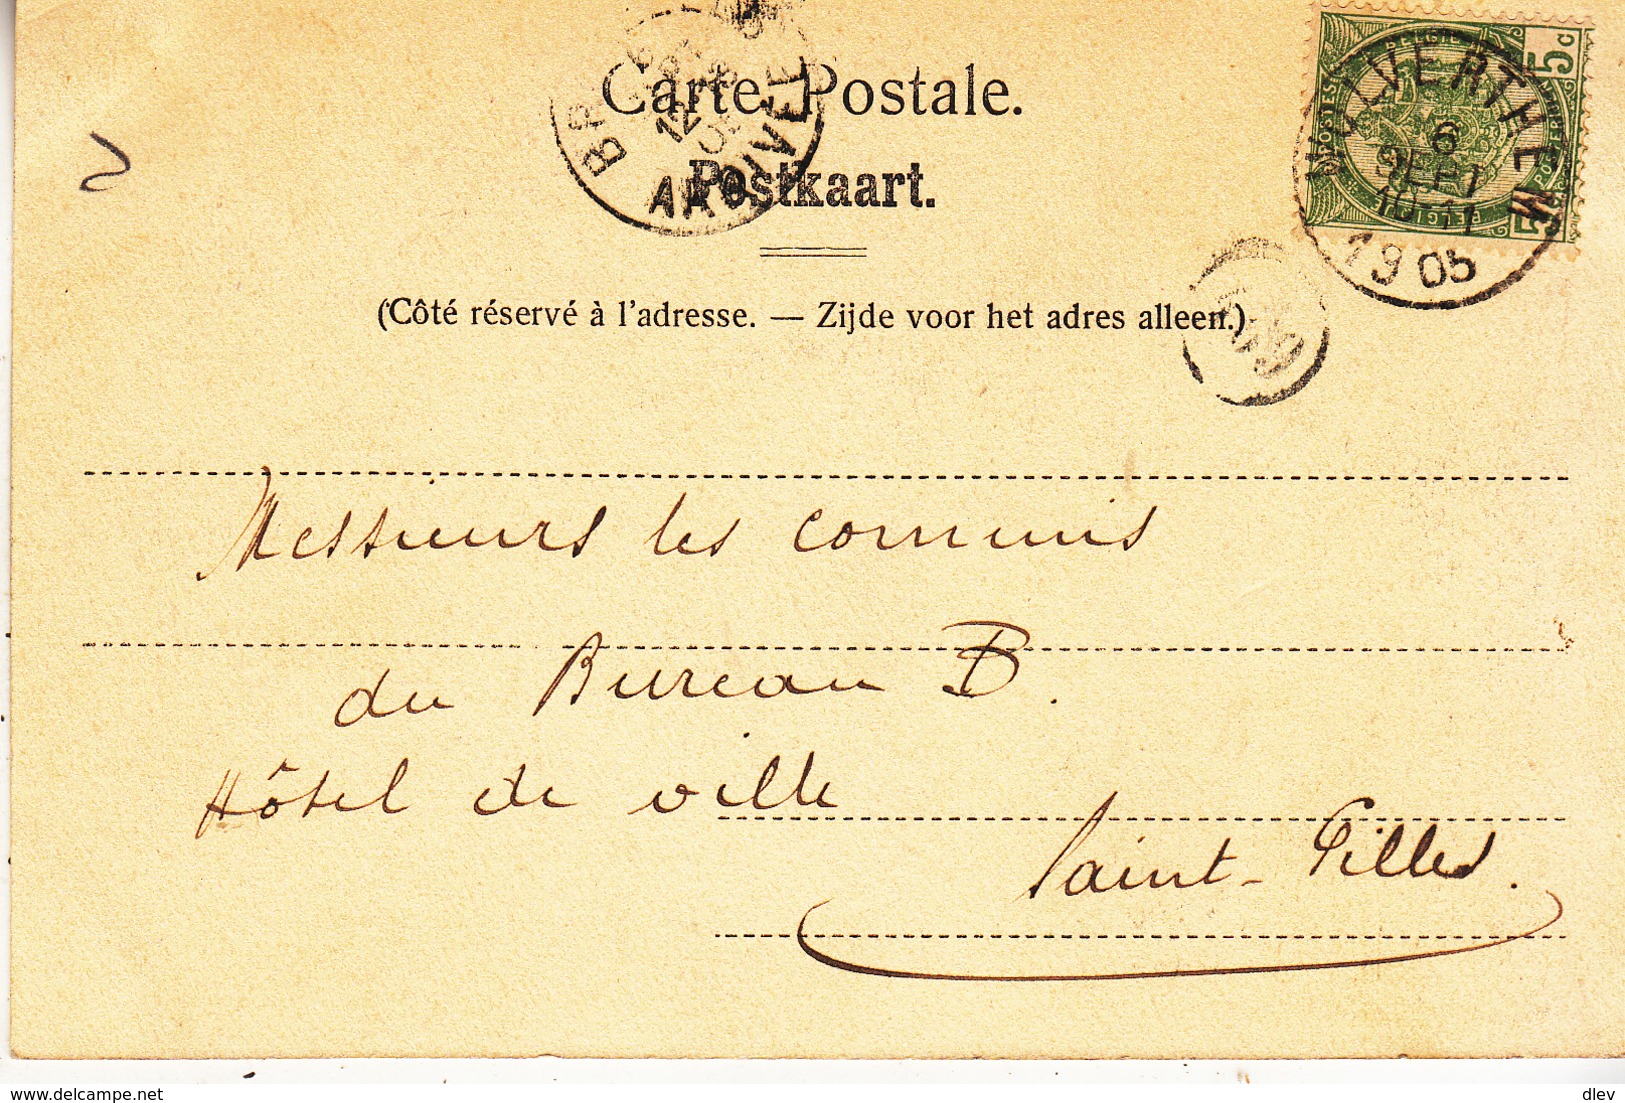 Carte Postale.
Postkaart.
ARRIVEE
5c
WOLVERTHEM
6
SEPT
10-11
1905
(Côté réservé à l'adresse. — Zijde voor het adres alleen.)
Messieurs les commis
du Bureau B.
Hôtel de ville
Saint-Gilles.
www.delcampe.net
dlev